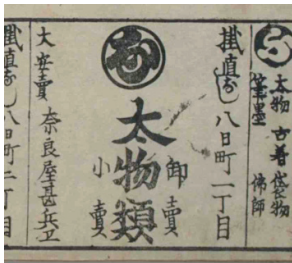 太物 古着 袋物
筆墨 佛師
掛直なし 八日町一丁目
卸賣
太物類
小賣
大安賣 奈良屋甚兵卫
掛直なし 八日町二丁目